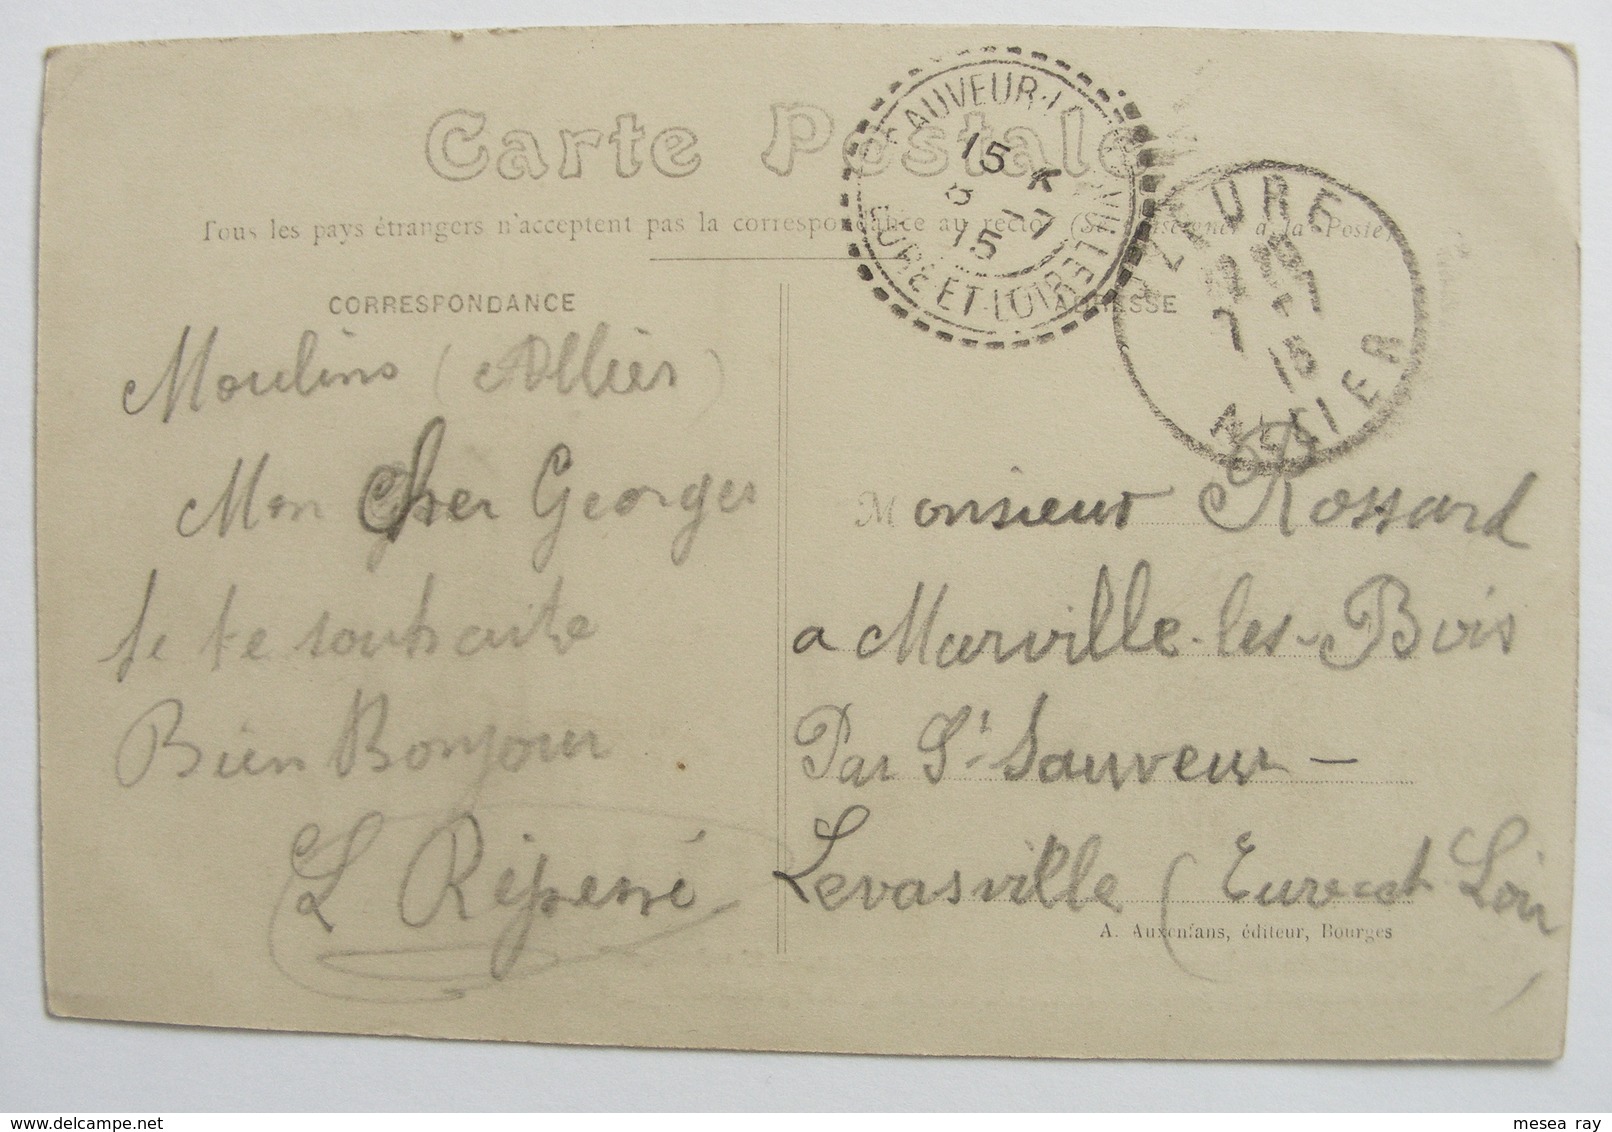 Carte Postale
Tous les pays étrangers n'acceptent pas la correspondance au recto (Se renseigner à la Poste)
CORRESPONDANCE
Moulins (Allier)
Mon Cher Georges
Je te souhaite
Bien Bonjour
L
ADRESSE
Monsieur Rossard
a Marville-les-Bois
Par St Sauveur –
Levasville (Eure et Loir
A. Auxenfans, éditeur, Bourges
15 K
7
15
EURE ET LOIR
YZEURE
7
15
mesea ray